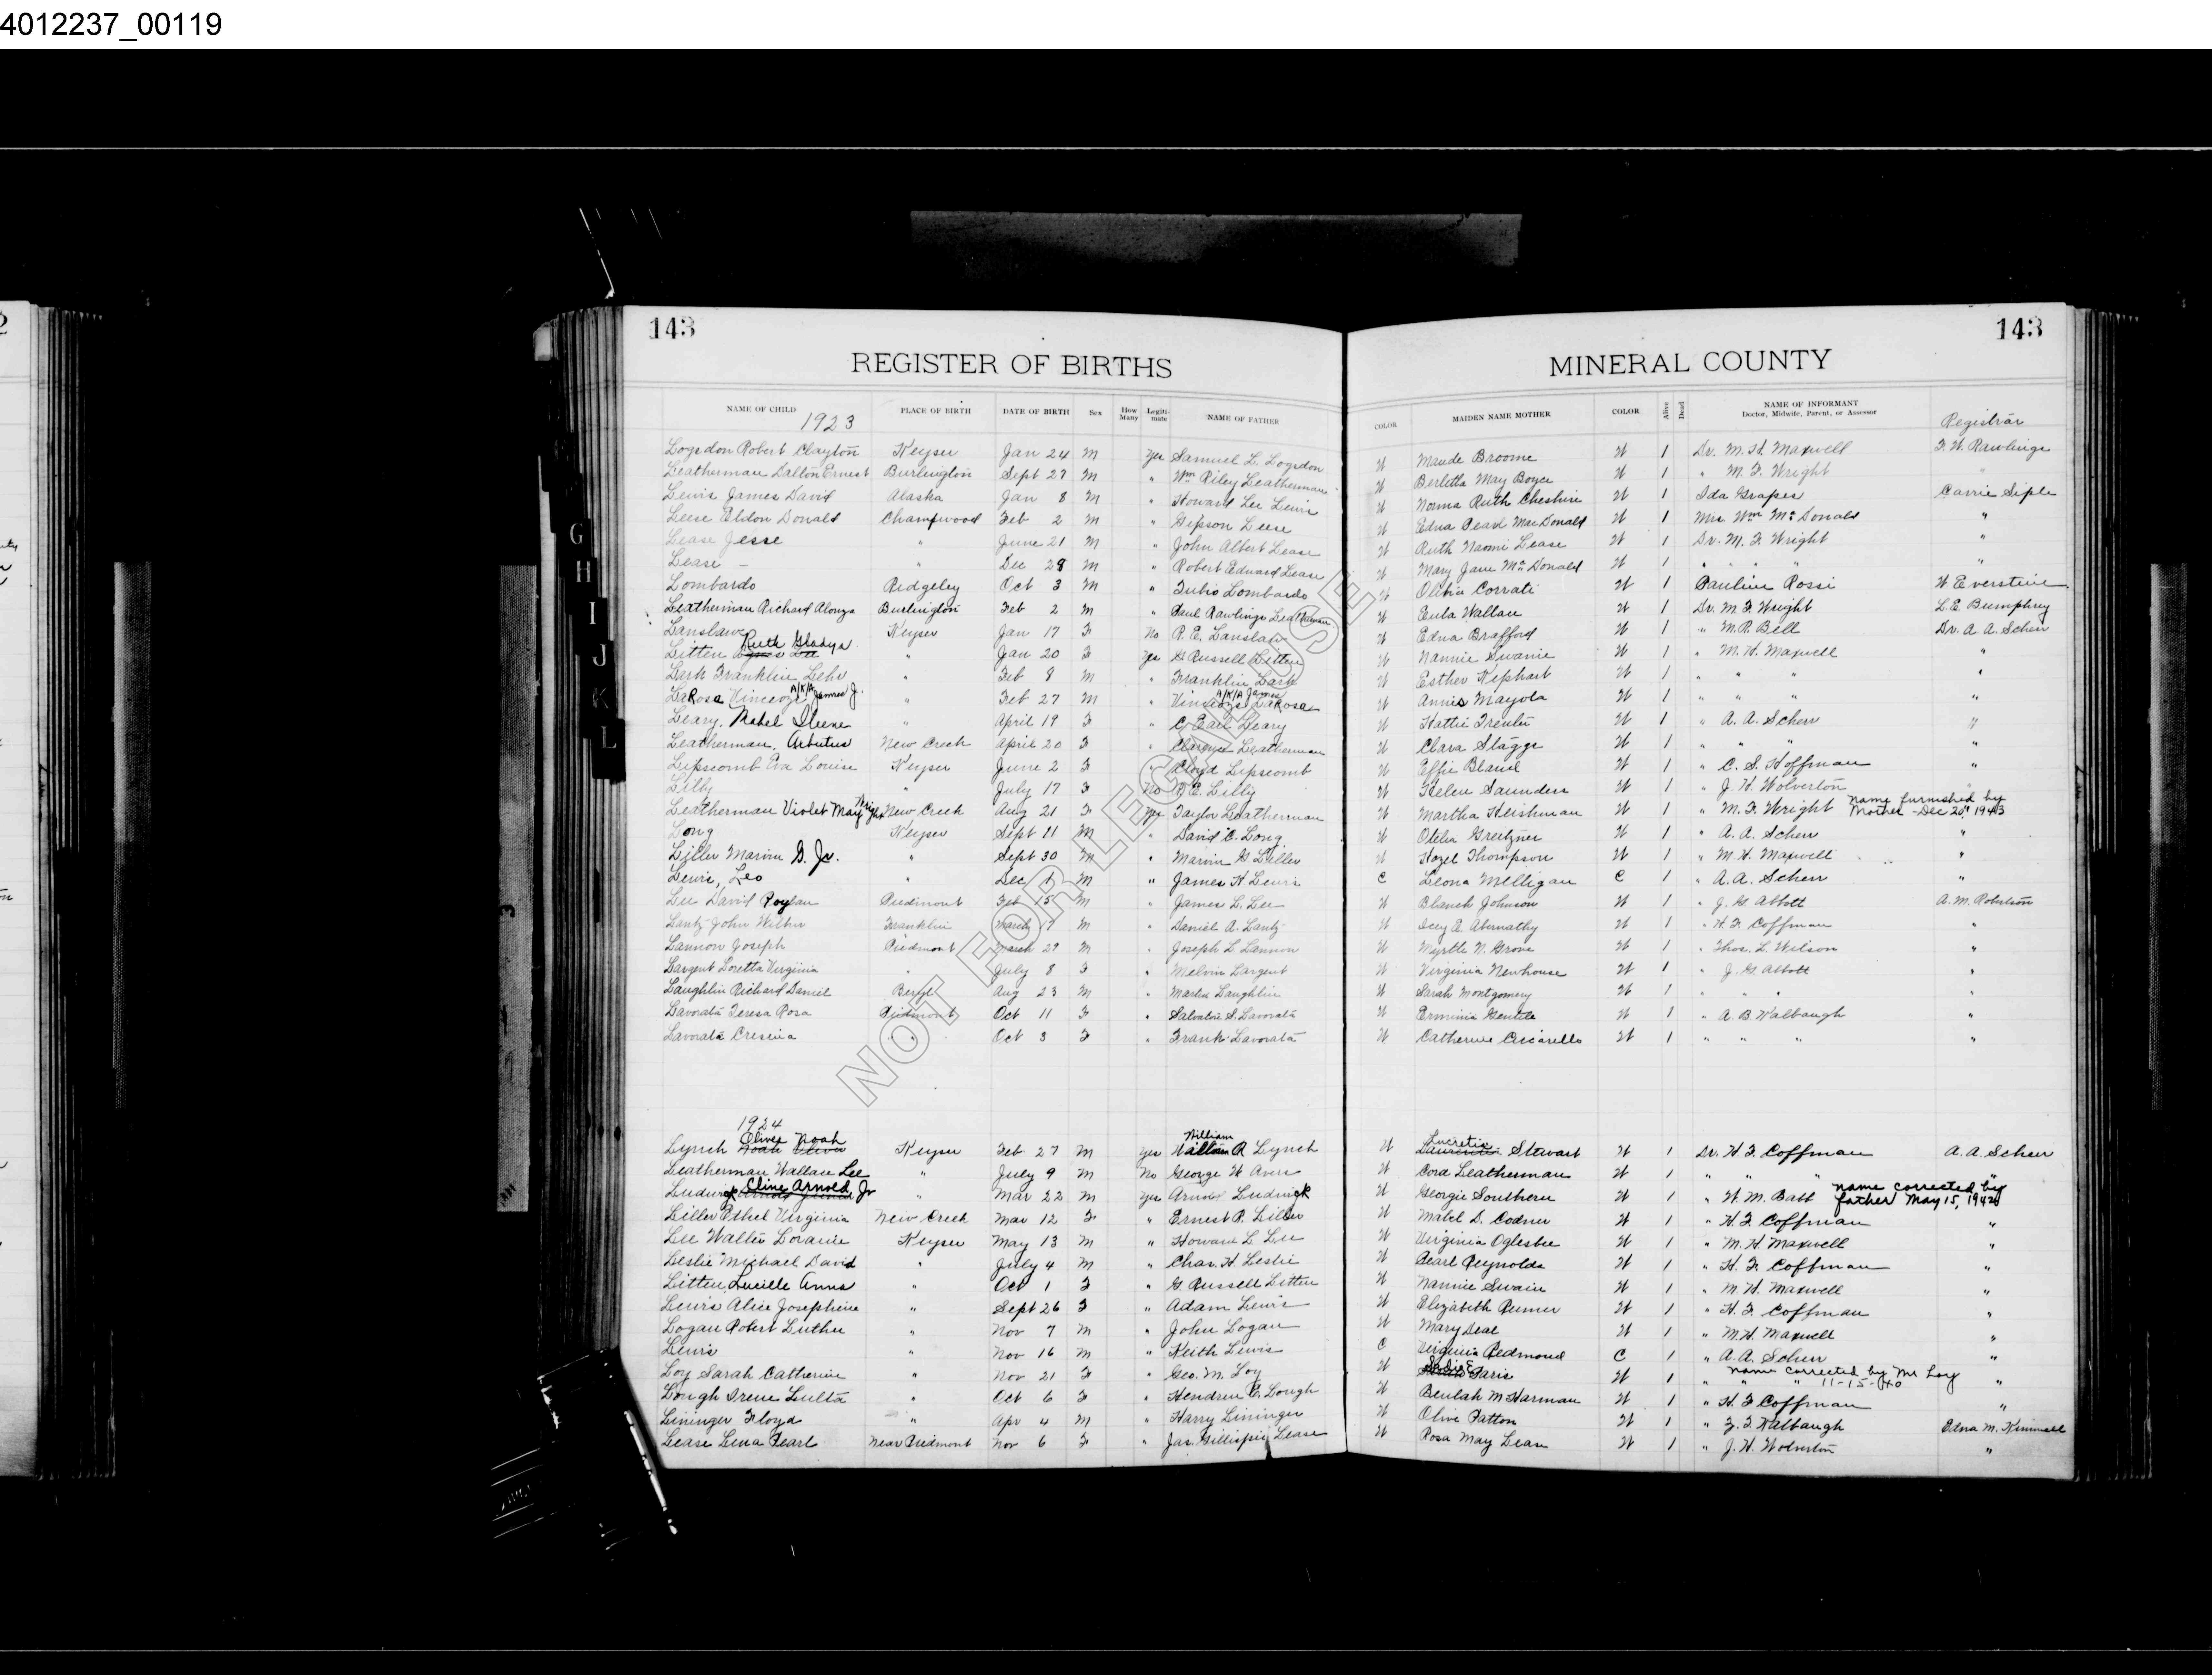 4012237_00119
143 143
REGISTER OF BIRTHS MINERAL COUNTY
NAME OF CHILD PLACE OF BIRTH DATE OF BIRTH Sex How Many Legiti-mate NAME OF FATHER COLOR MAIDEN NAME MOTHER COLOR Alive Dead NAME OF INFORMANT Doctor, Midwife, Parent, or Assessor Registrar
1923
Logsdon Robert Clayton Keyser Jan 24 M Yes Samuel L. Logsdon W Maude Broome W 1 Dr. M. H. Maxwell F. W. Rawlings
Leatherman Dalton Ernest Burlington Sept 27 M " Wm Riley Leatherman W Berletta May Boyce W 1 " M. F. Wright "
Lewis James David Alaska Jan 8 M " Howard Lee Lewis W Norma Ruth Cheshire W 1 Ida Grapes Carrie Siple
Leese Eldon Donald Champwood Feb 2 M " Gipson Leese W Edna Pearl MacDonald W 1 Mrs. Wm McDonald "
Lease Jesse " June 21 M " John Albert Lease W Ruth Naomi Lease W 1 Dr. M. F. Wright "
Lease — " Dec 28 M " Robert Edward Lease W Mary Jane McDonald W 1 " " " "
Lombardo Ridgeley Oct 3 M " Tubio Lombardo W Olibia Corrati W 1 Pauline Rossi W Everstine
Leatherman Richard Alonza Burlington Feb 2 M " Paul Rawlings Leatherman W Eula Wallau W 1 Dr. M. F. Wright L. E. Bumphrey
Lanslaw Keyser Jan 17 F No R. E. Lanslaw W Edna Brafford W 1 " M. R. Bell Dr. A. A. Scherr
Litten Ruth Gladys " Jan 20 F Yes G Russell Litten W Nannie Swanie W 1 " M. H. Maxwell "
Lark Franklin Lehr " Feb 8 M " Franklin Lark W Esther Kephart W 1 " " " "
LaRosa Vincenzo A/K/A James J. " Feb 27 M " Vincenzo A/K/A James LaRosa W Annie Mayola W 1 " " " "
Leary, Mabel Ileene " April 19 F " C. Earl Leary W Hattie Trenter W 1 " A. A. Scherr "
Leatherman, Arbutus New Creek April 20 F " Clarence Leatherman W Clara Staggs W 1 " " " "
Lipscomb Eva Louise Keyser June 2 F " Cloyd Lipscomb W Effie Bland W 1 " C. S. Hoffman "
Lilly " July 17 F No R. E. Lilly W Helen Saunders W 1 " J. H. Wolverton "
Leatherman Violet May Wright New Creek Aug 21 F Yes Taylor Leatherman W Martha Heishman W 1 " M. F. Wright name furnished by Mother - Dec 20, 1943
Long Keyser Sept 11 M " David C. Long W Otelia Greitzner W 1 " A. A. Scherr "
Liller Marvin G. Jr. " Sept 30 M " Marvin G Liller W Hazel Thompson W 1 " M. H. Maxwell "
Lewis, Leo " Dec 1 M " James H Lewis C Leona Milligan C 1 " A. A. Scherr "
Lee David Roylan Piedmont Feb 15 M " James L. Lee W Blanch Johnson W 1 " J. G. Abbott A. M. Robertson
Lantz John Wilbur Franklin March 17 M " Daniel A. Lantz W Icey A. Abernathy W 1 " H. F. Coffman "
Lannon Joseph Piedmont March 29 M " Joseph L Lannon W Myrtle N. Grove W 1 " Thos. L. Wilson "
Largent Loretta Virginia " July 8 F " Melvin Largent W Virginia Newhouse W 1 " J. G. Abbott "
Laughlin Richard Daniel Beryl Aug 23 M " Martin Laughlin W Sarah Montgomery W 1 " " " "
Lavorata Teresa Rosa Piedmont Oct 11 F " Salvatore S. Lavorata W Erminia Gentile W 1 " A. B Walbaugh "
Lavorata Cresena " Oct 3 F " Frank Lavorata W Catherine Ciccarello W 1 " " " "
1924
Lynch Oliver Noah Keyser Feb 27 M Yes William R Lynch W Lucretia Stewart W 1 Dr. H. F. Coffman A. A. Scherr
Leatherman Wallace Lee " July 9 M No George W Avers W Cora Leatherman W 1 " " " "
Ludwick Cline Arnold Jr " Mar 22 M Yes Arnold Ludwick W Georgie Southern W 1 " W. M. Babb name corrected by father May 15, 1942
Liller Ethel Virginia New Creek Mar 12 F " Ernest R. Liller W Mabel D. Codner W 1 " H. F. Coffman "
Lee Walter Loraine Keyser May 13 M " Howard L. Lee W Virginia Oglesbee W 1 " M. H. Maxwell "
Leslie Michael David " July 4 M " Chas. H Leslie W Pearl Reynolds W 1 " H. F. Coffman "
Litten, Lucille Anna " Oct 1 F " G. Russell Litten W Nannie Swain W 1 " M H. Maxwell "
Lewis Alice Josephine " Sept 26 F " Adam Lewis W Elizabeth Reimer W 1 " H. F. Coffman "
Logan Robert Luther " Nov 7 M " John Logan W Mary Deal W 1 " M. H. Maxwell "
Lewis " Nov 16 M " Keith Lewis C Virginia Redmond C 1 " A. A. Scherr "
Loy Sarah Catherine " Nov 21 F " Geo. M. Loy W Sadie E Paris W 1 " " " name corrected by Mr Loy 11-15-40 "
Lough Irene Lulta " Oct 6 F " Hendren C. Lough W Beulah M Harman W 1 " H. F Coffman "
Lininger Floyd " Apr 4 M " Harry Lininger W Olive Patton W 1 " Z. T. Kalbaugh Edna M. Kimmell
Lease Lena Pearl Near Piedmont Nov 6 F " Jas. Gillispie Lease W Rosa May Lease W 1 " J. H. Wolverton "
NOT FOR LEGAL USE
G
H
I
J
K
L